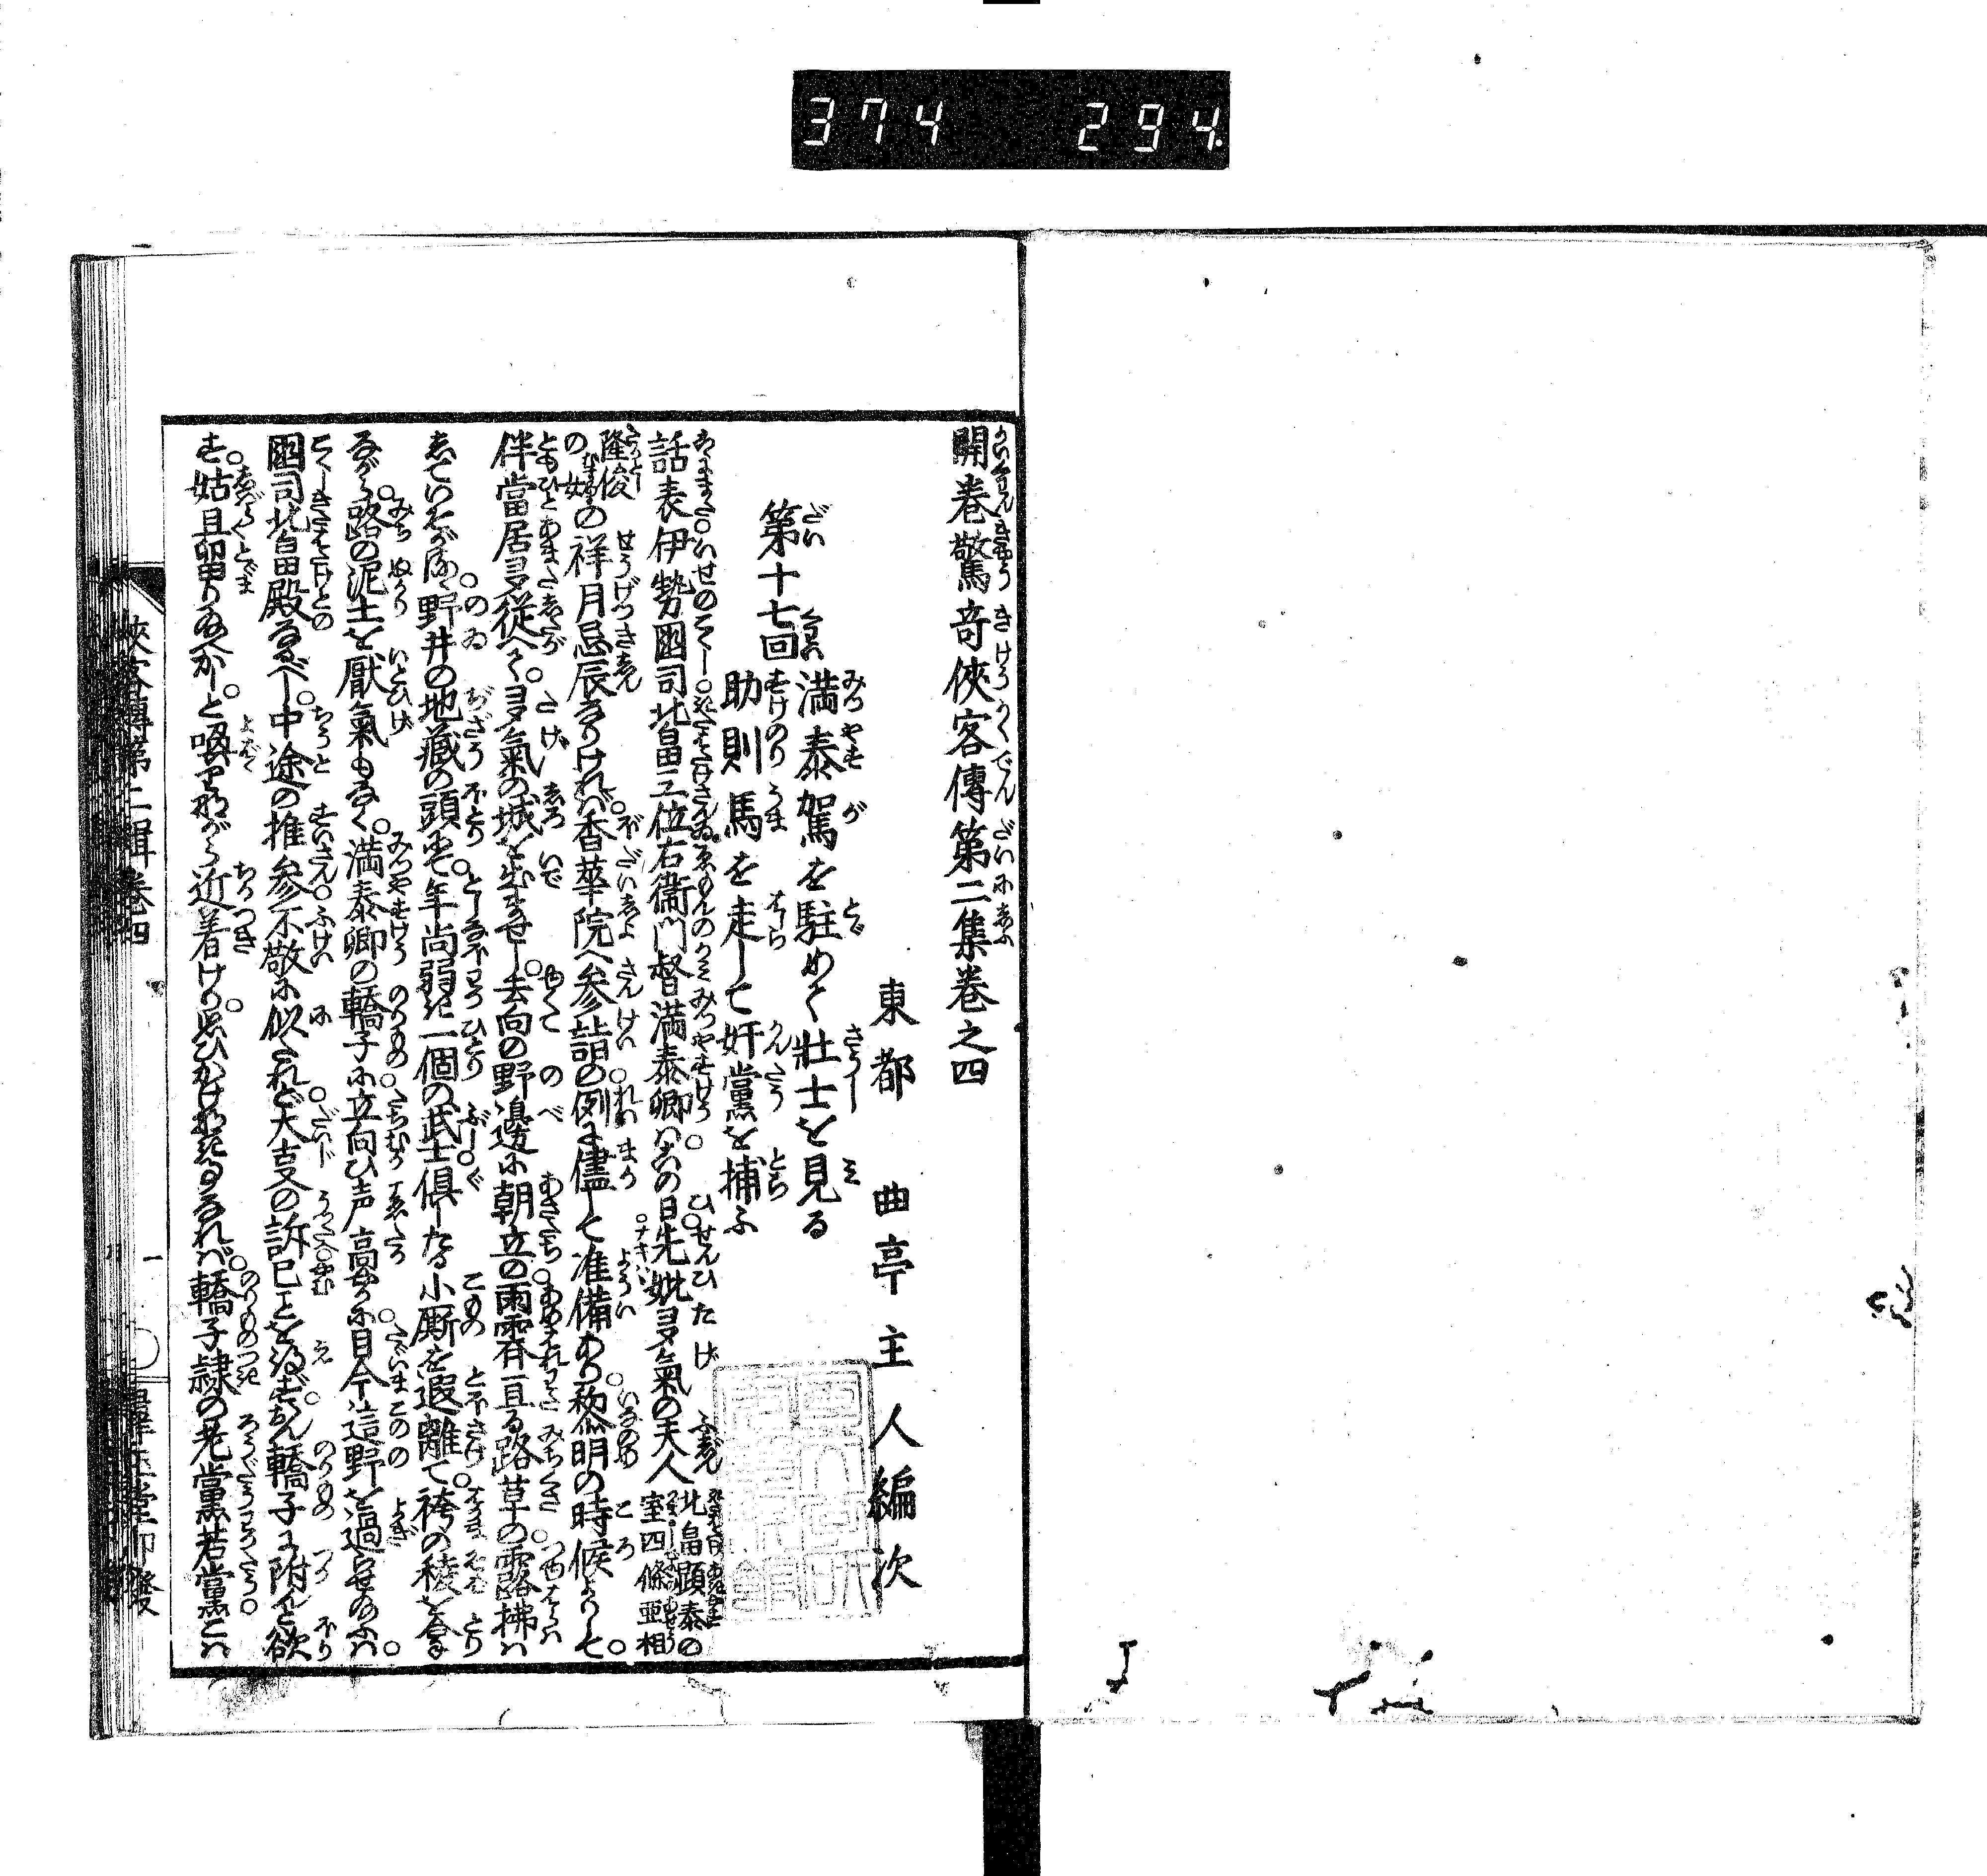 374 294
開巻驚奇侠客傳第二集巻之四
東都 曲亭主人編次
第十七回
満泰駕を駐めて壮士を見る
助則馬を走して奸黨を捕ふ
話表伊勢國司北畠三位右衞門督満泰卿ハ其の日先妣多氣の夫人
北畠顕泰の
室四條亜相
隆俊
の女
の祥月忌辰なりけれバ香華院へ参詣の例に儘して准備あり黎明の時候よりして
伴當居多従へて多氣の城を出ませし去向の野邊に朝立の雨霽亘る路草の露拂ハ
していそがする野井の地藏の頭にて年尚弱き一個の武士倶したる小厮を遐離て袴の稜を拿
ながら路の泥土を厭氣もなく満泰卿の轎子に立向ひ声高やかに目今這野を過らせ給ふハ
國司北畠殿なるべし中途の推参不敬に似たれど大事の訴已ことを得ずなん轎子に附んと欲
す姑且留り給へかしと喚りながら近着けり思ひかけなき事なれバ轎子隷の老黨若黨こハ
侠客傳第二輯巻四
一